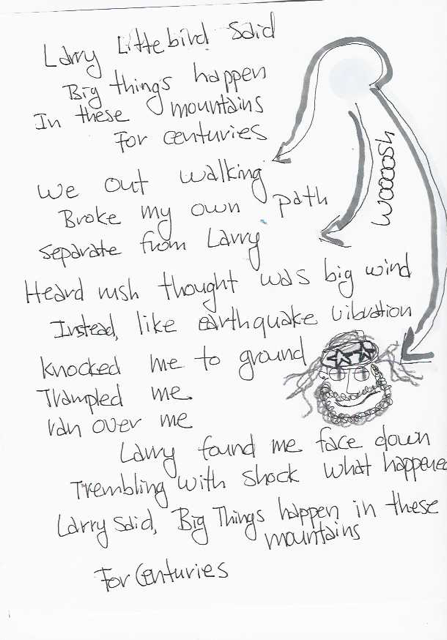 Larry Littlebird Said
Big things happen
In these mountains
For centuries
We out walking
Broke my own path
separate from Larry
Heard rush thought was big wind
Instead, like earthquake vibration
knocked me to ground
Trampled me
ran over me
Larry found me face down
Trembling with shock what happened
Larry Said, Big Things happen in these
mountains
For Centuries
WOOOOSH